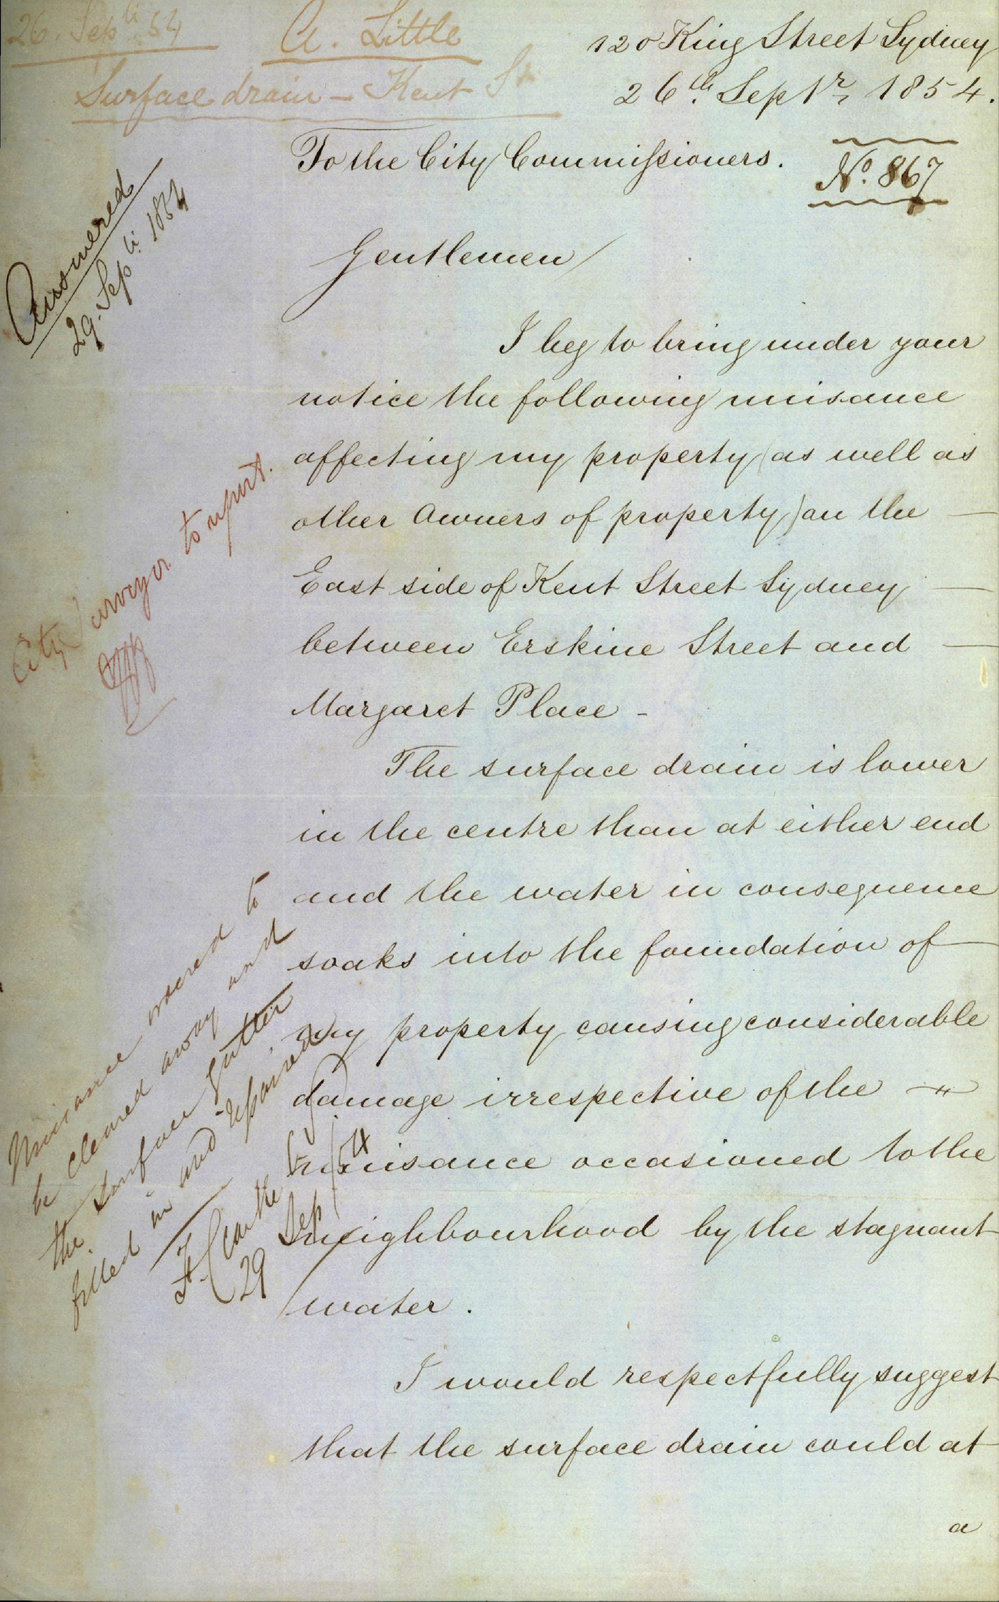 26. Septr. 54
A. Little
Surface drain - Kent St
120 King Street Sydney
26th. Septr, 1854.
To the City Commissioners.
No. 867
Answered
29. Septr. 1854
Gentlemen/
I beg to bring under your
notice the following nuisance
affecting my property (as well as
other Owners of property) on the —
East side of Kent Street Sydney —
between Erskine Street and —
Margaret Place -
City Surveyor to report.
The surface drain is lower
in the centre than at either end
and the water in consequence
soaks into the foundation of —
my property causing considerable
damage irrespective of the —
nuisance occasioned to the
neighbourhood by the stagnant
water.
Nuisance ordered to
be cleared away and
the surface gutter
filled in and repaired
29 Sep/54
I would respectfully suggest
that the surface drain could at
a